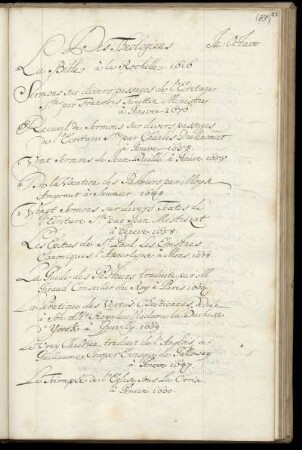 Des Theologiens In Octavo
La Bible à la Rochelle 1616
Sermons sur divers passages de l'Ecriture
Ste par François Turrettin Ministre
à Geneve 1676
Recueil de Sermons sur divers passages
de l'Ecriture Ste par Charles Drelincourt
à Geneve 1658
Vingt Sermons de Jean Daillé à Geneve
De la Vocation des Pasteurs par Moyse
Amyraut à Saumur 1649
Vingt Sermons sur divers Textes de
l'Ecriture Ste par Jean Mestrezat
à Geneve 1658
Les Epitres de St Paul les Epistres
Canoniques l'Apocalypse à Mons
La Guide des Pecheurs traduite par Mr
Girard Conseiller du Roy à Paris
La Pratique des Vertus Chretiennes dedié
à Madame la Duchesse
d'Yorck à
Le Vray Chretien traduit de l'Anglois de
Guillaume Couper Evesque de Galloway
à Geneve
Le Triomphe de l'Eglise sous la Croix
à Geneve